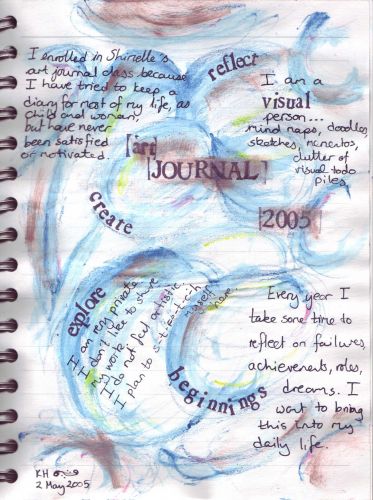 I enrolled in Shimelle's
art journal class because
I have tried to keep a
diary for most of my life, as
child and woman,
but have never
been satisfied
or motivated.
reflect
I am a
visual
person...
mind maps, doodles,
sketches, mementos,
clutter of
visual todo
piles,
[art]
[JOURNAL]
[2005]
create
explore
I am very private
I don't like to share
my work
I do not feel artistic
I plan to s-t-r-e-t-c-h
myself
here
beginnings
Every year I
take some time to
reflect on failures,
achievements, roles,
dreams. I
want to bring
this into my
daily life.
KH
2 May 2005